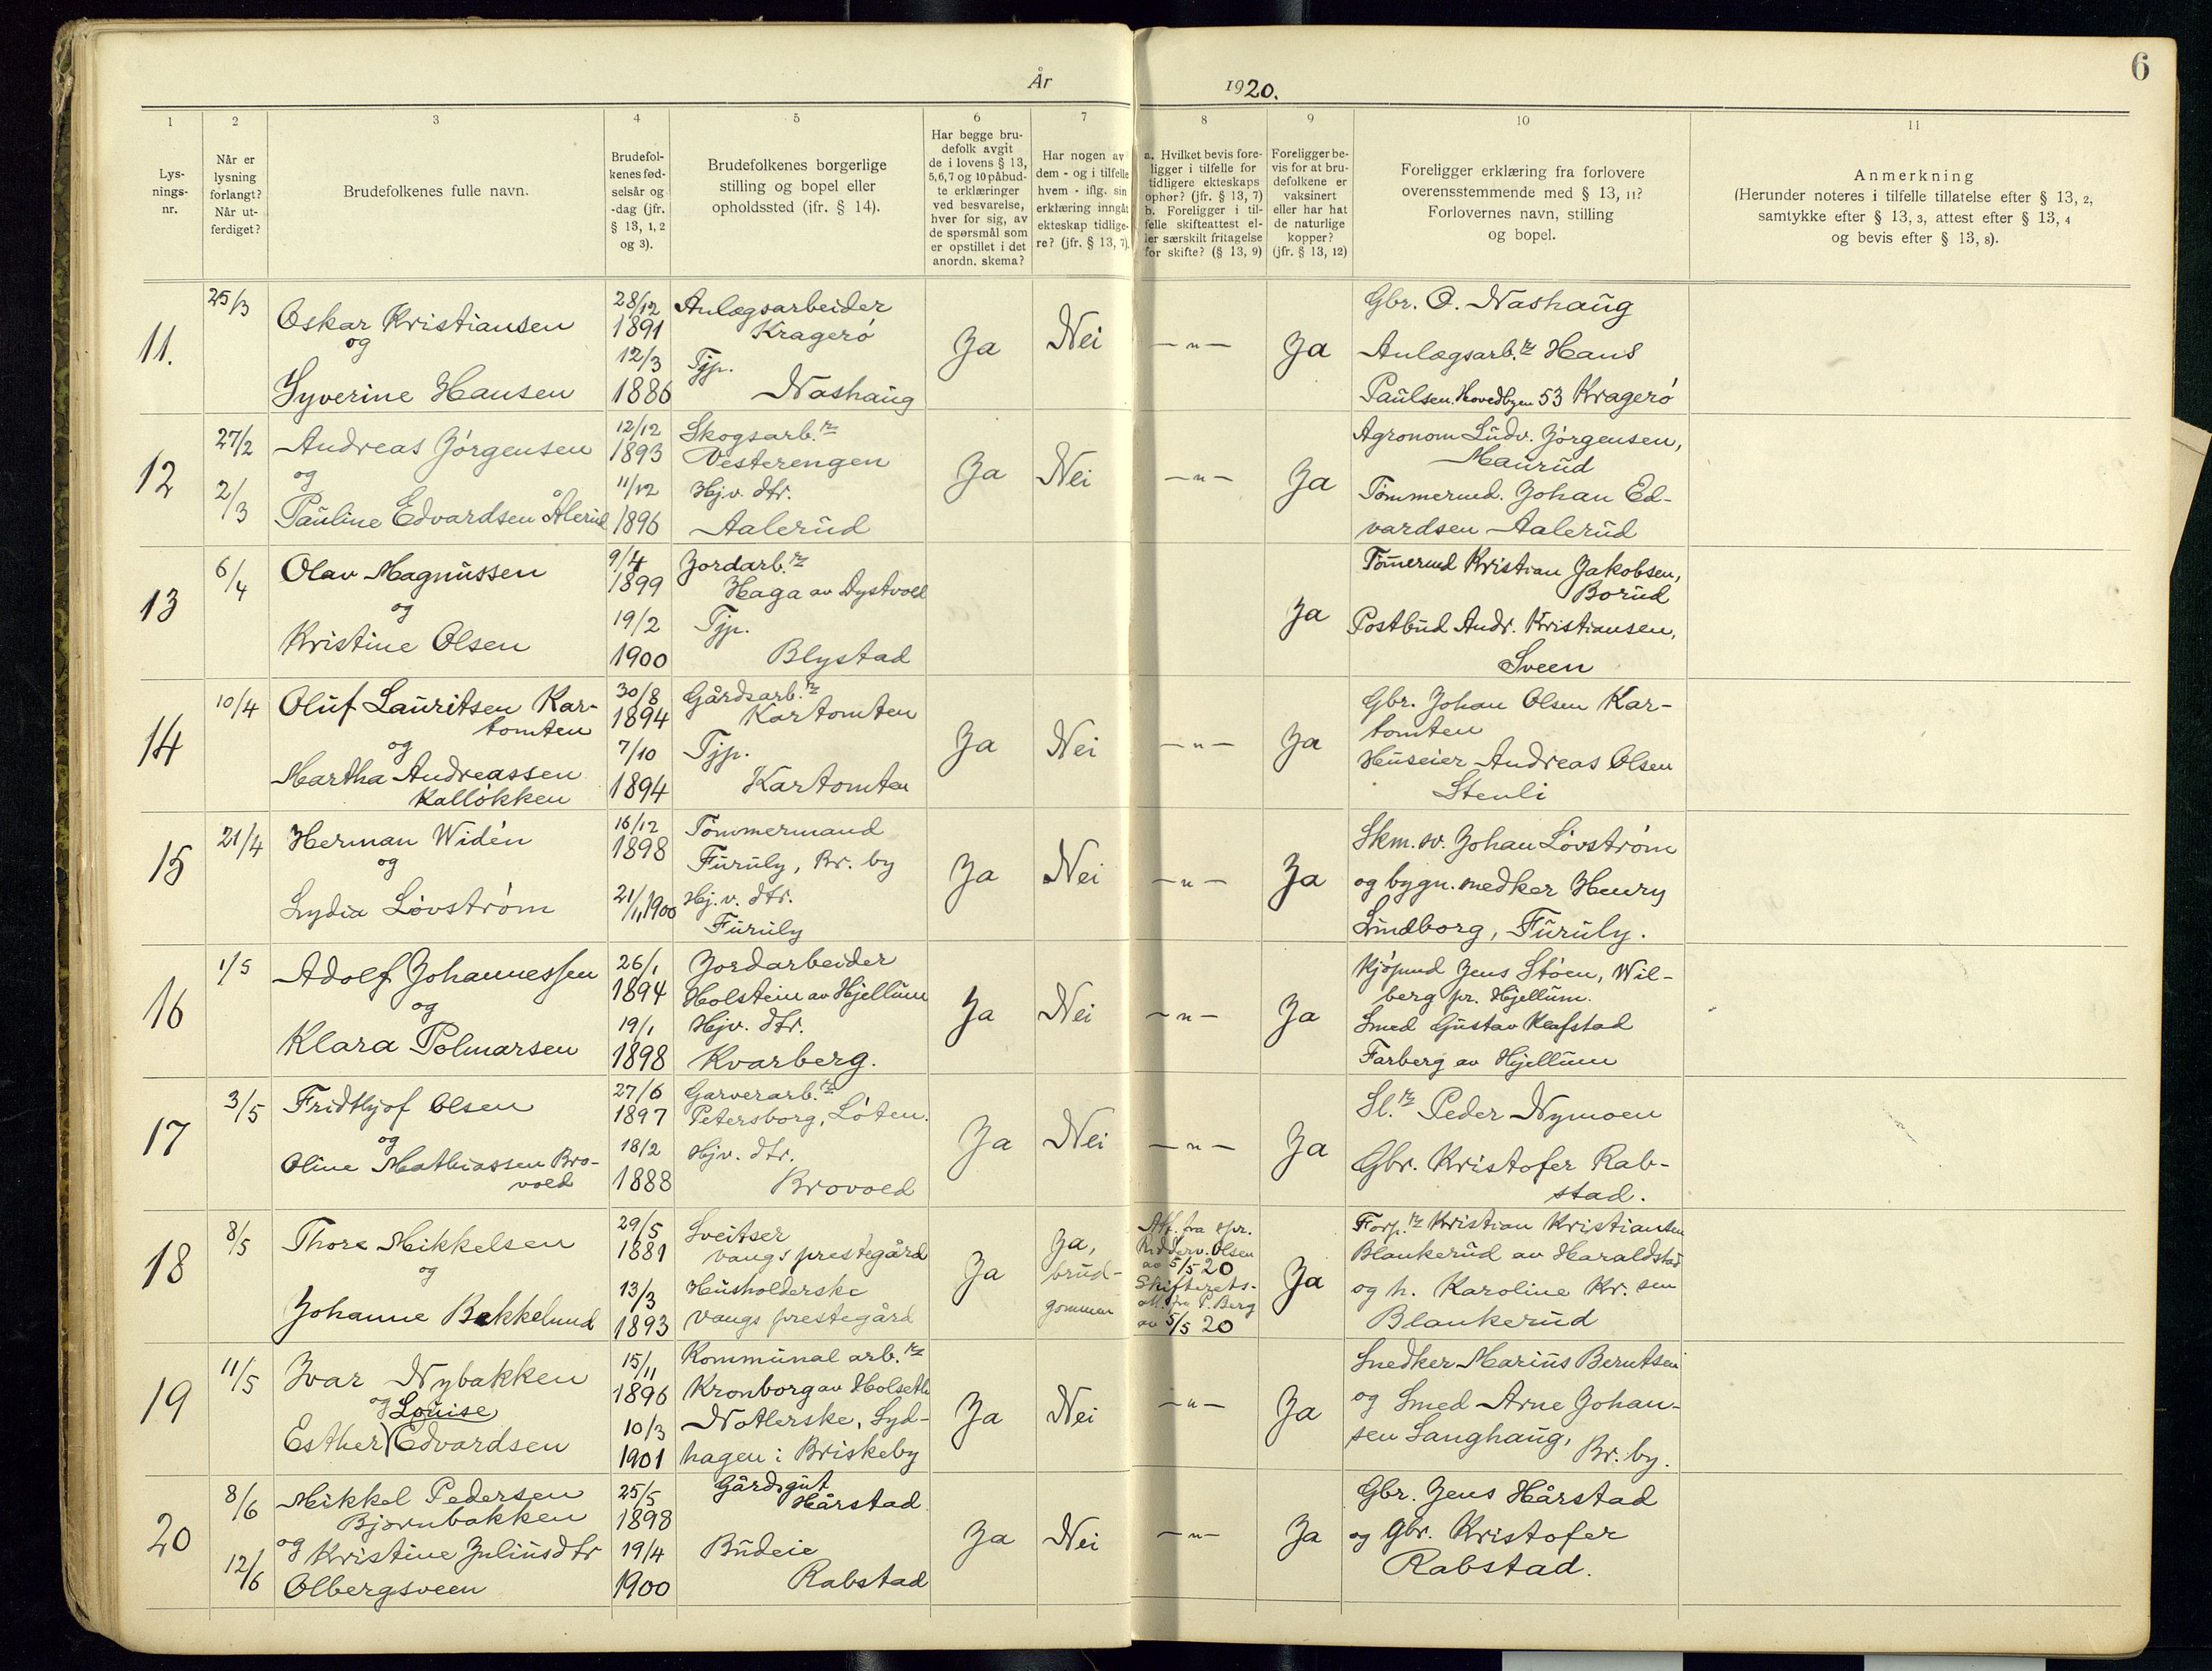 6
År 1920.
1
2
3
4
5
6
7
8
9
10
11
Lys-
nings-
nr.
Når er
lysning
forlangt?
Når ut-
ferdiget?
Brudefolkenes fulle navn.
Brudefol-
kenes fød-
selsår og
-dag (jfr.
§ 13, 1, 2
og 3).
Brudefolkenes borgerlige
stilling og bopel eller
opholdssted (ifr. § 14).
Har begge bru-
defolk avgit
de i lovens § 13,
5, 6, 7 og 10 påbud-
te erklæringer
ved besvarelse,
hver for sig, av
de spørsmål som
er opstillet i det
anordn. skema?
Har nogen av
dem - og i tilfelle
hvem - iflg. sin
erklæring inngåt
ekteskap tidlige-
re? (jfr. § 13, 7).
a. Hvilket bevis fore-
ligger i tilfelle for
tidligere ekteskaps
ophør? (jfr. § 13, 7)
b. Foreligger i til-
felle skifteattest el-
ler særskilt fritagelse
for skifte? (§ 13, 9)
Foreligger be-
vis for at bru-
defolkene er
vaksinert
eller har hat
de naturlige
kopper?
(jfr. § 13, 12)
Foreligger erklæring fra forlovere
overensstemmende med § 13, 11?
Forlovernes navn, stilling
og bopel.
Anmerkning
(Herunder noteres i tilfelle tillatelse efter § 13, 2,
samtykke efter § 13, 3, attest efter § 13, 4
og bevis efter § 13, 8).
11.
25/3
Oskar Kristiansen
og
Syverine Hansen
28/12
1891
12/3
1886
Anlægsarbeider
Kragerø
Tjp.
Nashaug
Ja
Nei
-"-
Ja
Gbr. O. Nashaug
Anlægsarb.r Hans
Paulsen. Hovedbyen 53 Kragerø
12
27/2
2/3
Andreas Jørgensen
og
Pauline Edvardsen Ålerud
12/12
1893
11/12
1896
Skogsarb.r
Vesterengen
Hjv. dtr.
Aalerud
Ja
Nei
-"-
Ja
Agronom Ludv. Jørgensen,
Maurud
Tømmermd. Johan Ed-
vardsen Aalerud
13
6/4
Olav Magnussen
og
Kristine Olsen
9/4
1899
19/2
1900
Jordarb.r
Haga av Dystvold
Tjp.
Blystad
Ja
Tømermd Kristian Jakobsen,
Borud
Postbud Andr. Kristiansen,
Sveen
14
10/4
Oluf Lauritsen Kar-
tomten
og
Martha Andreassen
Kalløkken
30/8
1894
7/10
1894
Gårdsarb.r
Kartomten
Tjp.
Kartomten
Ja
Nei
-"-
Ja
Gbr. Johan Olsen Kar-
tomten
Huseier Andreas Olsen
Stenli
15
21/4
Herman Widén
og
Lydia Løvstrøm
16/12
1898
21/1, 1900
Tømmermand
Furuly, Br. by
Hj. v. dtr.
Furuly
Ja
Nei
-"-
Ja
Skm. sv. Johan Løvstrøm
og bygn. snedker Henry
Lindborg, Furuly.
16
1/5
Adolf Johannessen
og
Klara Polmarsen
26/1
1894
19/1
1898
Jordarbeider
Holstein av Hjellum
Hjv. dtr.
Kvarberg.
Ja
Nei
-"-
Ja
Kjøpmd Jens Støen, Wil-
berg pr. Hjellum.
Smed Gustav Klafstad
Farberg av Hjellum
17
3/5
Fridthjof Olsen
og
Oline Mathiassen Bro-
vold
27/6
1897
18/2
1888
Garverarb.r
Petersborg, Løten.
Hjv. dtr.
Brovold
Ja
Nei
-"-
Ja
Sl.r Peder Nymoen
Gbr. Kristofer Rab-
stad.
18
8/5
Thore Mikkelsen
og
Johanne Bekkelund
29/5
1881
13/3
1893
Sveitser
Vangs prestegård
Husholderske
Vangs prestegård
Ja
Ja,
brud-
gommen
Att. fra spr.
Ridderv. Olsen
av 5/5 20
Skifterets-
att. fra P. Berg
av 5/5 20
Ja
Forp.r Kristian Kristiansen
Blankerud av Haraldstad
og h. Karoline Kr. sen
Blankerud
19
11/5
Ivar Nybakken
og Louise
Esther Edvardsen
15/11
1896
10/3
1901
Kommunal arb.r
Kronborg av Holseth
Notlerske, Lyd-
hagen i Briskeby
Ja
Nei
-"-
Ja
Snedker Marius Berntsen
og Smed Arne Johan-
sen Langhaug,
Br. by.
20
8/6
12/6
Mikkel Pedersen
Bjørnbakken
og Kristine Juliusdtr
Olbergsveen
25/5
1898
19/4
1900
Gårdsgut
Hårstad
Budeie
Rabstad
Ja
Nei
-"-
Ja
Gbr. Jens Hårstad
og Gbr. Kristofer
Rabstad.